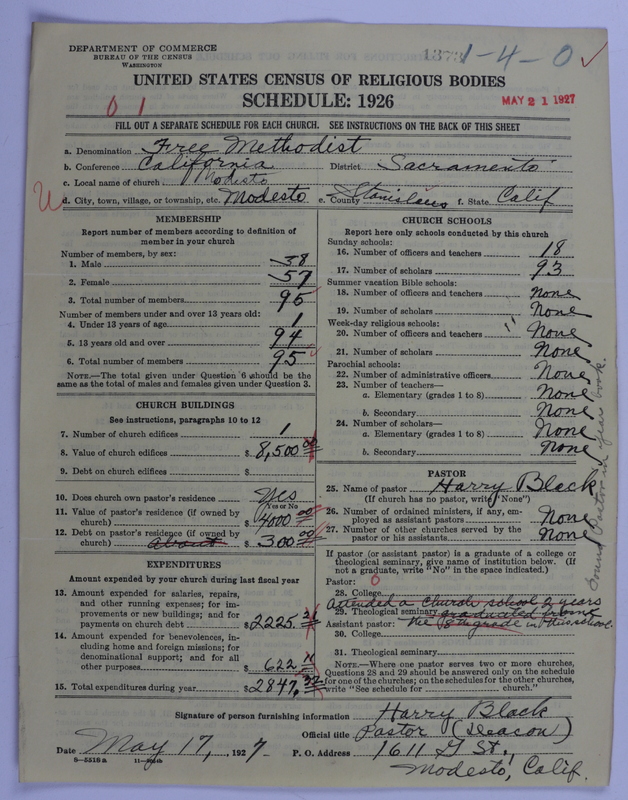 DEPARTMENT OF COMMERCE
BUREAU OF THE CENSUS
WASHINGTON
1-4-0
UNITED STATES CENSUS OF RELIGIOUS BODIES
SCHEDULE: 1926
0 1
MAY 21 1927
FILL OUT A SEPARATE SCHEDULE FOR EACH CHURCH. SEE INSTRUCTIONS ON THE BACK OF THIS SHEET
a. Denomination Free Methodist
b. Conference California District Sacramento
c. Local name of church Modesto
d. City, town, village, or township, etc. Modesto e. County Stanislaus f. State Calif
MEMBERSHIP
Report number of members according to definition of
member in your church
Number of members, by sex:
1. Male 38
2. Female 57
3. Total number of members 95
Number of members under and over 13 years old:
4. Under 13 years of age 1
5. 13 years old and over 94
6. Total number of members 95
NOTE.—The total given under Question 6 should be the
same as the total of males and females given under Question 3.
CHURCH BUILDINGS
See instructions, paragraphs 10 to 12
7. Number of church edifices 1
8. Value of church edifices $ 8,500 00
9. Debt on church edifices $
10. Does church own pastor's residence Yes
Yes or No
11. Value of pastor's residence (if owned by
church) $ 4000 00
12. Debt on pastor's residence (if owned by
church) about $ 300 00
EXPENDITURES
Amount expended by your church during last fiscal year
13. Amount expended for salaries, repairs,
and other running expenses; for im-
provements or new buildings; and for
payments on church debt $ 2225.21
14. Amount expended for benevolences, in-
cluding home and foreign missions; for
denominational support; and for all
other purposes $ 622 11
15. Total expenditures during year $ 2847.32
CHURCH SCHOOLS
Report here only schools conducted by this church
Sunday schools:
16. Number of officers and teachers 18
17. Number of scholars 93
Summer vacation Bible schools:
18. Number of officers and teachers None
19. Number of scholars None
Week-day religious schools:
20. Number of officers and teachers None
21. Number of scholars None
Parochial schools:
22. Number of administrative officers None
23. Number of teachers—
a. Elementary (grades 1 to 8) None
b. Secondary None
24. Number of scholars—
a. Elementary (grades 1 to 8) None
b. Secondary None
PASTOR
25. Name of pastor Harry Black
(If church has no pastor, write "None")
26. Number of ordained ministers, if any, em-
ployed as assistant pastors None
27. Number of other churches served by the
pastor or his assistants None
If pastor (or assistant pastor) is a graduate of a college or
theological seminary, give name of institution below. (If
not a graduate, write "No" in the space indicated.)
Pastor: 0
28. College
Attended a church school 2 years
29. Theological seminary graduated from
Assistant pastor: the 8th grade in this school.
30. College
31. Theological seminary
NOTE.—Where one pastor serves two or more churches,
Questions 28 and 29 should be answered only on the schedule
for one of the churches; on the schedules for the other churches,
write "See schedule for church."
Found Pastor in year book.
Signature of person furnishing information Harry Black
Official title Pastor (Deacon)
Date May 17, 1927 P. O. Address 1611 G St,
Modesto, Calif.
8-5516a